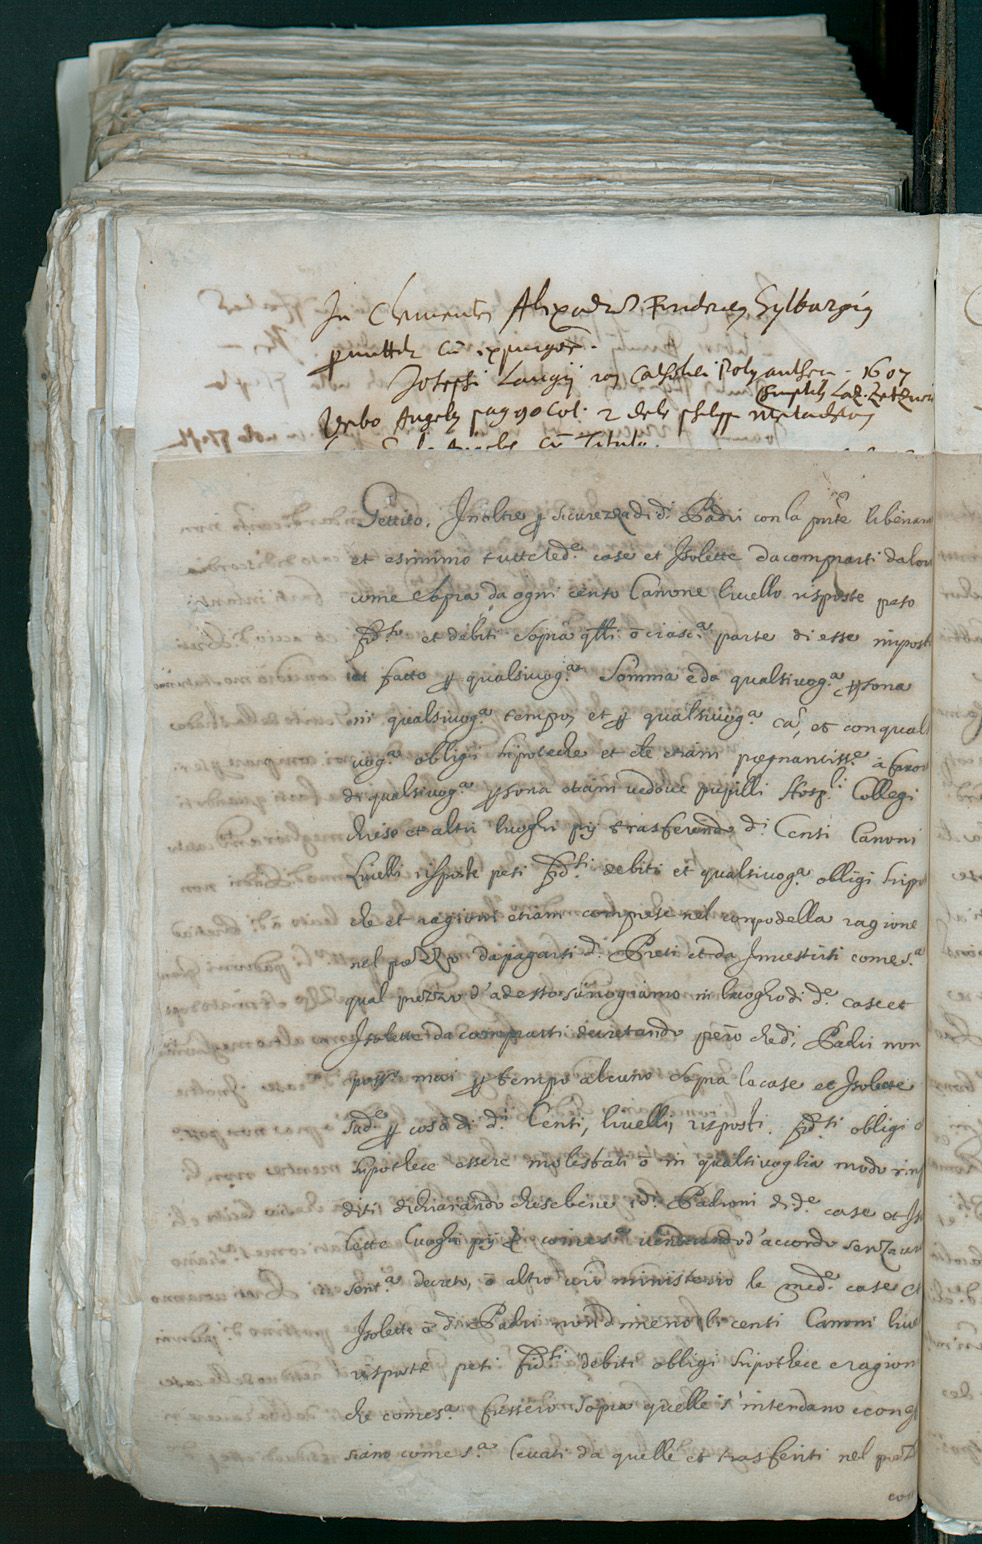 In Clementis Alexadr. Friderici Sylburgij
permittitr cū expurgõe.
Josephi Langij Polyanthea 1607
sumptib. Laz. Zetzneri
Verbo Angelus pag 90 Col. 2 dele
cū titulo.
Gettito. Inoltre ꝑ sicurezza di d.i Padri con la pnte liberiam
et esimimo tutte le d.e case et Isolette da comprarsi da loro
come sopra da ogni censo Canone livello risposte peso
et debiti sopra qlli ò ciasc.a parte di esse impost
et fatto ꝑ qualsivog.a somma e da qualsivog.a ꝑsona
in qualsivog.a tempo, et ꝑ qualsivog.a cã, et con quals
vog.a obligi hipoteche et etiam pregnantisse à favor
di qualsivog.a ꝑsona etiam vedove pupilli Hosp.li Collegi
chiese et altri luoghi pij trasferendo d.i Censi Canoni
Livelli risposte pesi debiti et qualsivog.a obligi hipo
che et ragioni etiam comprese nel corpo della ragione
nel prezzo da pagarsi d.i Preti et da Investirsi come s.a
qual prezzo d'adesso surogiamo in luogho di d.e case et
Isolette da comprarsi decretando però che d.i Padri non
poss.o mai ꝑ tempo alcuno sopra le case et Isolette
sud.e ꝑ cosa di d.i Censi, livelli, risposti obligi ò
hipothece essere molestati ò in qualsivoglia modo rinp
diti dichiarando che se bene i d.i Padroni di d.e case et Iso
lette luoghi pij come s.a venderando d'accordo senza ver
sent.a decreto, ò altro ministerio le med.e case et
Isolette à d.i Padri nondimeno li censi Canoni live
risposte pesi debiti obligi hipothece e ragion
che come s.a fussero sopra quelle s'intendano e cong
siano come s.a levati da quelle et trasferiti nel prezz